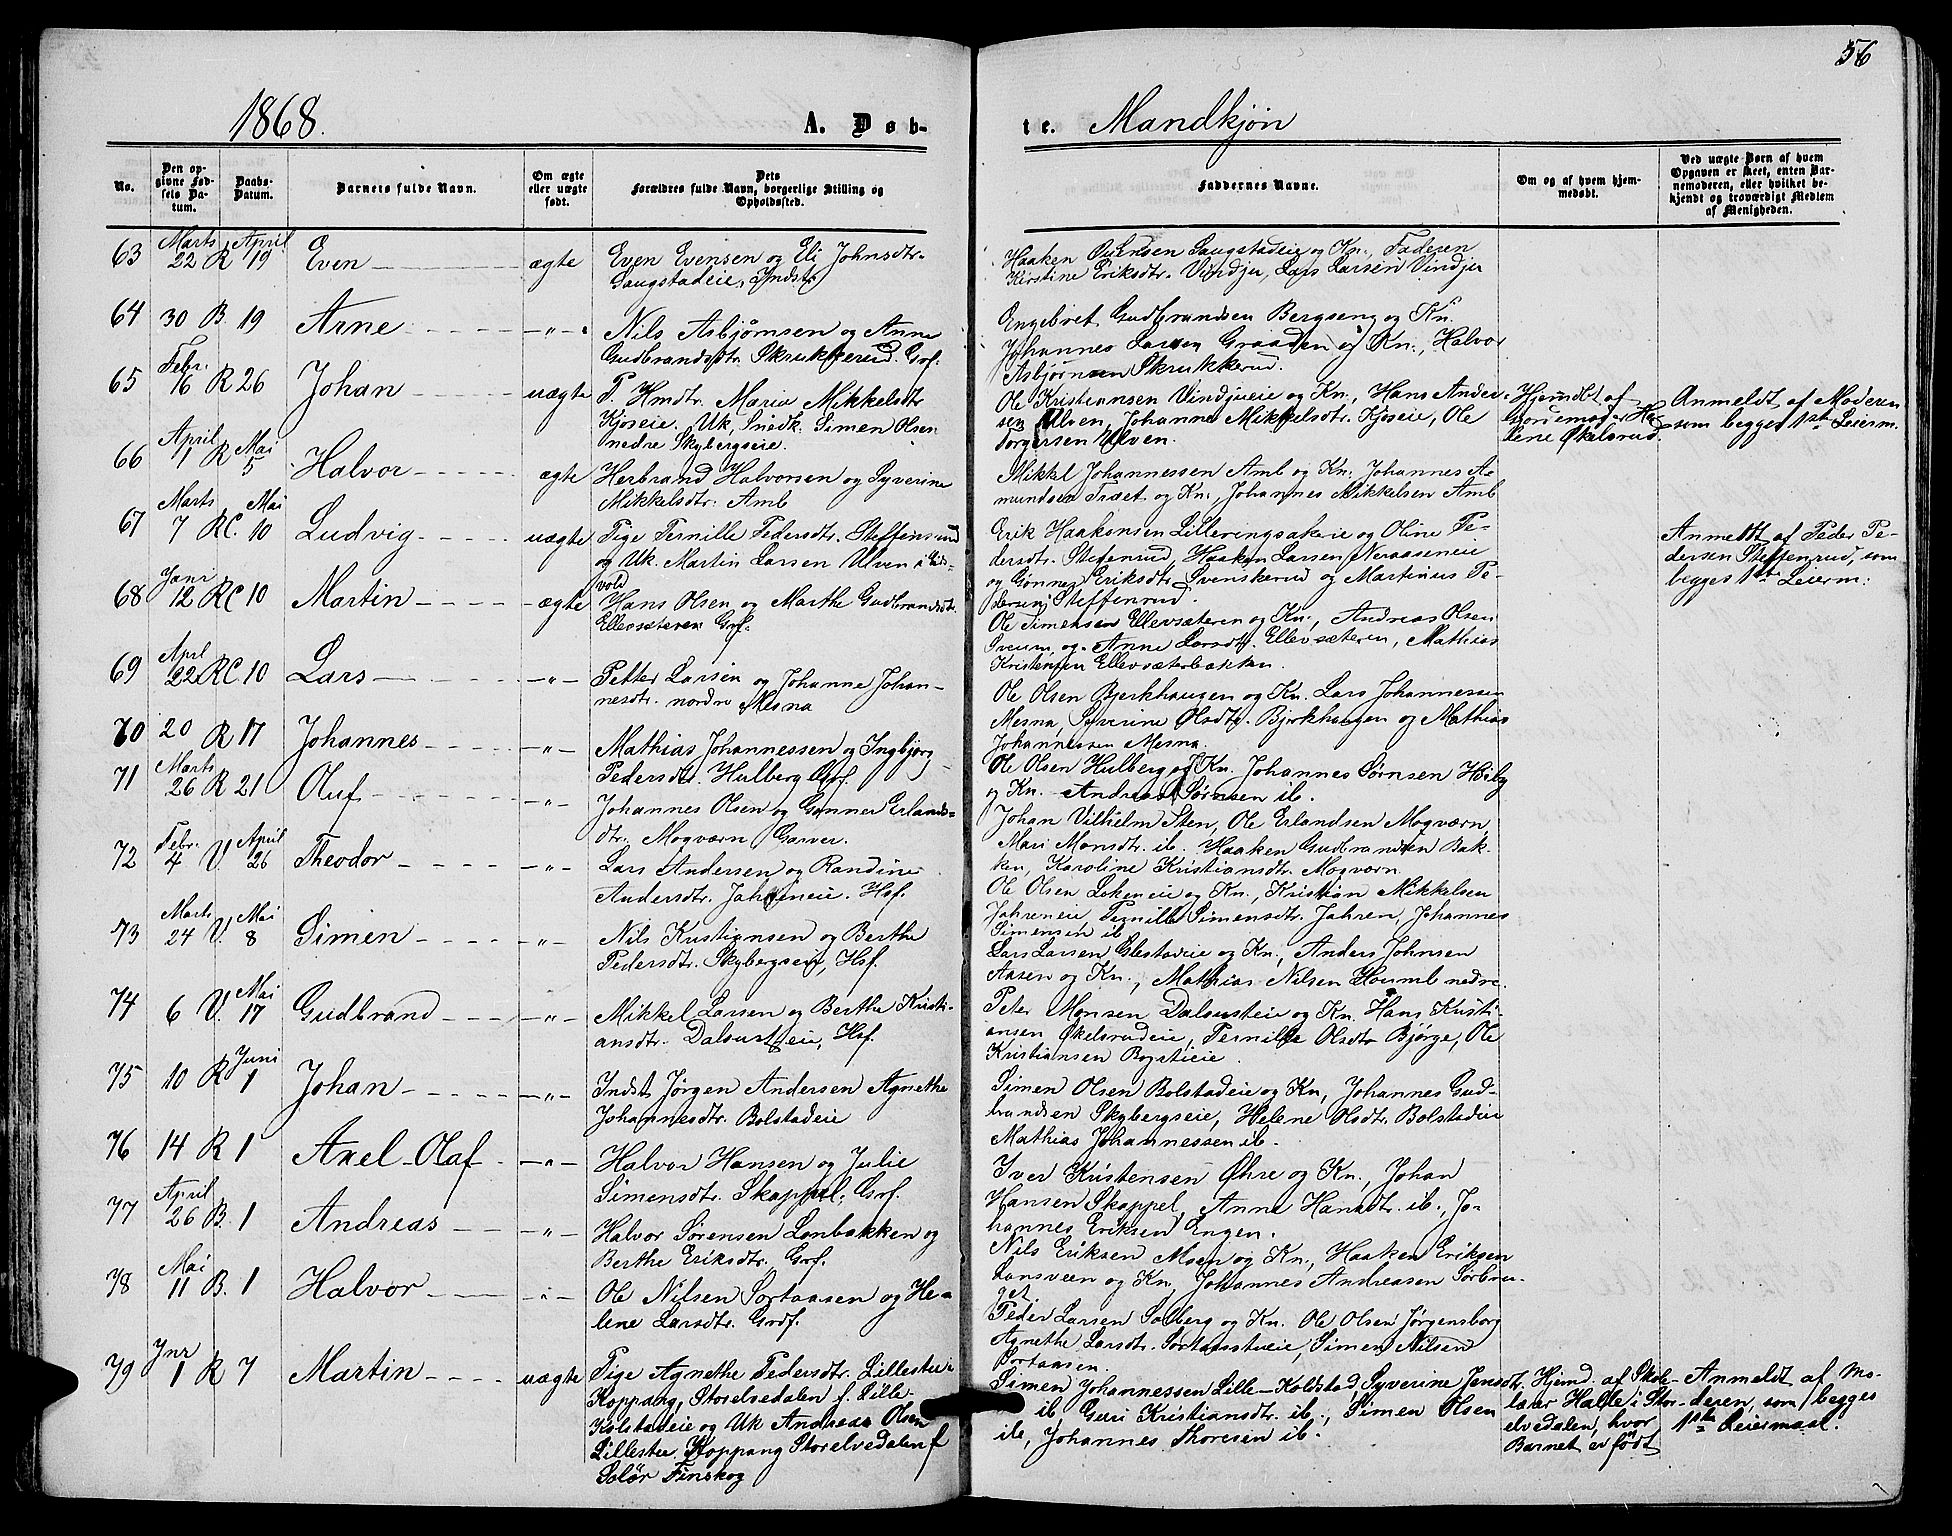 56
1868.
A. Døb-
te. Mandkjøn
No.
Den op-
givne Fød-
sels Da-
tum.
Daabs-
Datum.
Barnets fulde Navn.
Om ægte
eller uægte
født.
Dets
Forældres fulde Navn, borgerlige Stilling og
Opholdssted.
Faddernes Navne.
Om og af hvem hjem-
medøbt.
Ved uægte Børn af hvem
Opgaven er skeet, enten Bar-
nemoderen, eller hvilket be-
kjendt og troværdigt Medlem
af Menigheden.
63 Marts 22 R April 19 Even ægte
Even Evensen og Eli Johnsdtr.
Gaugstadeie, Indst.
Haaken Saugstadeie og Kn., Faderen
Kirstine Eriksdtr. Vindju, Lars Larsen Vindju
64 30 B. 19 Arne -"-
Nils Asbjørnsen og Anne
Gudbrandsdtr. Skrukkerud. Grf.
Engebret Gudbrandsen Bergseng og Kn.
Johannes Larsen Graaden og Kn., Halvor
Asbjørnsen Skrukkerud.
65 Febr. 16 R 26 Johan uægte
P. Hmdtr. Maria Mikkelsdtr
Kjoseie. Uk, Snedk. Simen Olsen
nedre Skybergseie.
Ole Kristiansen Vindjueie og Kn., Hans Ander-
sen Ulven, Johanne Mikkelsdtr. Kjoseie, Ole
Torgersen Ulven.
Hjemdbt af
Jordemoder He-
lene Økelsrud.
Anmeldt af Moderen
som begges 1ste Leierm.
66 April 1 R Mai 5 Halvor ægte
Herbrand Halvorsen og Syverine
Mikkelsdtr. Amb
Mikkel Johannessen Amb og Kn., Johannes A-
mundsen Træet og Kn., Johannes Mikkelsen Amb
67 Marts 7 RC. Mai 10 Ludvig uægte
Pige Pernille Pedersdtr. Steffensrud
og Uk. Martin Larsen Ulven i Eids-
vold
Erik Haakensen Lilleringsakereie og Oline Pe-
dersdtr. Steffenrud, Haaken Larsen Neraaseneie
og Gønner Eriksdtr. Svenskerud og Martinus Pe-
dersen Steffenrud.
Anmeldt af Peder Pe-
dersen Steffenrud, som
begges 1ste Leierm:
68 Janr 12 RC 10 Martin ægte
Hans Olsen og Marthe Gudbrandsdtr.
Ellevsæteren Grf.
Ole Simensen Ellevsæteren og Kn., Andreas Olsen
Sveum, og Anne Larsdtr. Ellevsæteren, Mathias
Kristensen Ellevsæterbakken.
69 Aprl 22 RC 10 Lars -"-
Petter Larsen og Johanne Johan-
nesdtr. nordre Mesna
Ole Olsen Bjerkhaugen og Kn. Lars Johannessen
Mesna, Syverine Olsdtr. Bjerkhaugen og Mathias
Johannessen Mesna.
70 20 R 17 Johannes -"-
Mathias Johannessen og Ingbjørg
Pedersdtr. Hulberg Grf.
Ole Olsen Hulberg og Kn. Johannes Sørnsen Høiby
og Kn. Andreas Sørnsen ib.
71 Marts 26 R 21 Oluf -"-
Johannes Olsen og Gønner Erlands-
dtr. Mogværn Garver.
Johan Vilhelm Sten, Ole Erlandsen Mogværn,
Mari Monsdtr. ib. Haaken Gudbrandsen Bak-
ken, Karoline Kristiansdtr. Mogværn
72 Febr. 4 V. April 26 Theodor -"-
Lars Andersen og Randine
Andersdtr. Jahreneie. Hsf.
Ole Olsen Lokeneie og Kn., Kristian Mikkelsen
Jahreneie, Pernille Simensdtr. Jahren, Johannes
Simensen ib
73 Marts 24 V. Mai 8 Simen -"-
Nils Kristiansen og Berthe
Pedersdtr. Skybergseie, Hsf.
Lars Larsen Glestadeie og Kn., Anders Johnsen
Aasen og Kn., Mathias Nilsen Houmb nedre.
74 6 V. Mai 17 Gudbrand -"-
Mikkel Larsen og Berthe Kristi-
ansdtr. Dalseieie, Hsf.
Peter Monsen og Kn. Hans Kristi-
ansen Økelsrudeie, Pernille Olsdtr Bjørge, Ole
Kristiansen
75 10 R Juni 1 Johan -"-
Indst Jørgen Andersen Agnethe
Johannesdtr. Bolstadeie
Simen Olsen Bolstadeie og Kn, Johannes Gud-
brandsen Skybergseie, Helene Olsdtr. Bolstadeie
Mathias Johannessen ib.
76 14 R 1 Axel-Olaf -"-
Halvor Hansen og Julie
Simensdtr. Skappel, Grf.
Iver Kristensen Øhre og Kn., Johan
Hansen Skappel, Anne Hansdtr. ib., Jo-
hannes Eriksen Engen.
77 April 26 B. 1 Andreas -"-
Halvor Sørensen Lonbakken og
Berthe Eriksdtr. Grf.
Nils Eriksen Moen og Kn., Haaken Eriksen
Lansveen og Kn, Johannes Andreasen Sørbru-
get
78 Mai 11 B. 1 Halvor -"-
Ole Nilsen Sortaasen og He-
lene Larsdtr. Grdf.
Peder Larsen Solberg og Kn. Ole Olsen Jørgensborg
Agnethe Larsdtr. Sortaasstueie, Simen Nilsen
Sortaasen.
79 Jnr 1 R 7 Martin uægte
Pige Agnethe Pedersdtr. Lillestu i
Koppang, Storelvedalen f. Lille-
Kolstadeie og Uk Andreas Olsen
Lillestu Koppang Storelvedalen f
Solør Finskog
Simen Johannessen Lille-Kolstad Syverine Jensdtr.
ib, Guri Kristiansdtr. ib., Simen Olsen
ib, Johannes Thoresen ib.
Hjemd. af Sko-
lærer Halle i Stor-
elvedalen, hvor
Barnet er født
Anmeldt af Mo-
deren, som begges
1ste Leiermaal.